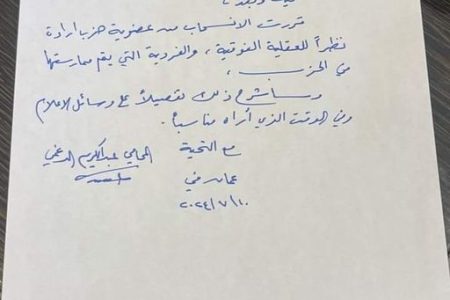 قررت الانسحاب من عضوية حزب ارادة
نظراً للعقلية الفوقية ، والفردية التي يتم ممارستها
في الحزب ،
وسأشرح ذلك تفصيلاً مع وسائل الاعلام
وفي الوقت الذي أراه مناسباً .
مع التحية
المحامي عبدالكريم الدغمي
عمان في
٢٠٢٤/٧/١٠